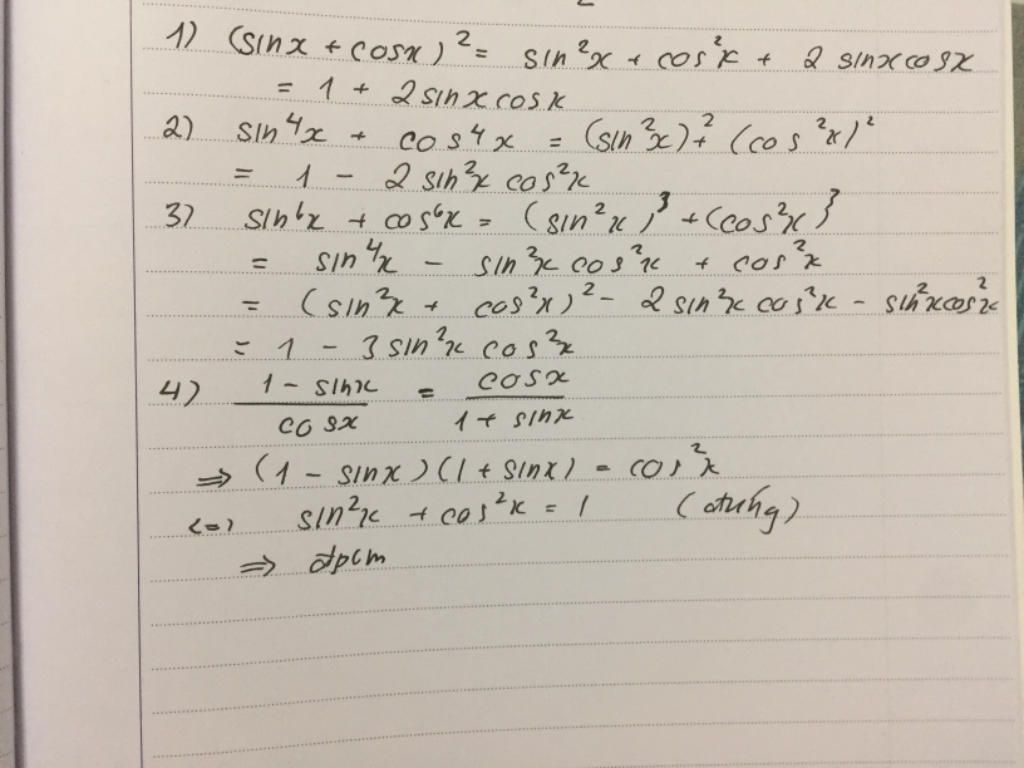 1) (sinx + cosx)² = sin²x + cos²x + 2 sinxcosx
= 1 + 2 sinxcosx
2) sin⁴x + cos⁴x = (sin²x)² + (cos²x)²
= 1 - 2 sin²x cos²x
3) sin⁶x + cos⁶x = (sin²x)³ + (cos²x)³
= sin⁴x - sin²x cos²x + cos²x
= (sin²x + cos²x)² - 2 sin²x cos²x - sin²xcos²x
= 1 - 3 sin²x cos²x
4) (1 - sinx)/(cosx) = (cosx)/(1 + sinx)
⇒ (1 - sinx)(1 + sinx) = cos²x
<=> sin²x + cos²x = 1 (đúng)
⇒ đpcm